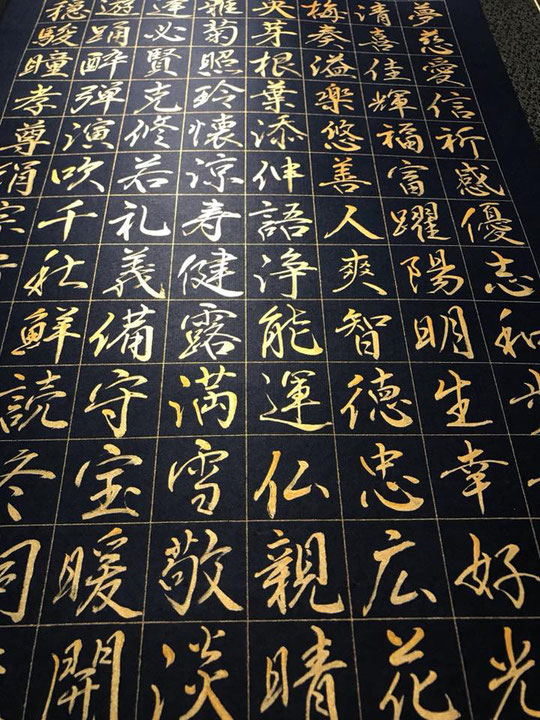 夢慈愛信祈感優志和
清喜佳輝福富躍陽明生幸好光
梅奏溢楽悠善人爽智徳忠広花
央芽根葉添伸語浄能運仏親晴
雅菊照玲懐涼寿健露満雪敬淡
達必賢克修若礼義備守宝暖開
遊踊酔弾演吹千秋鮮読冬
穏駿瞳孝尊絹